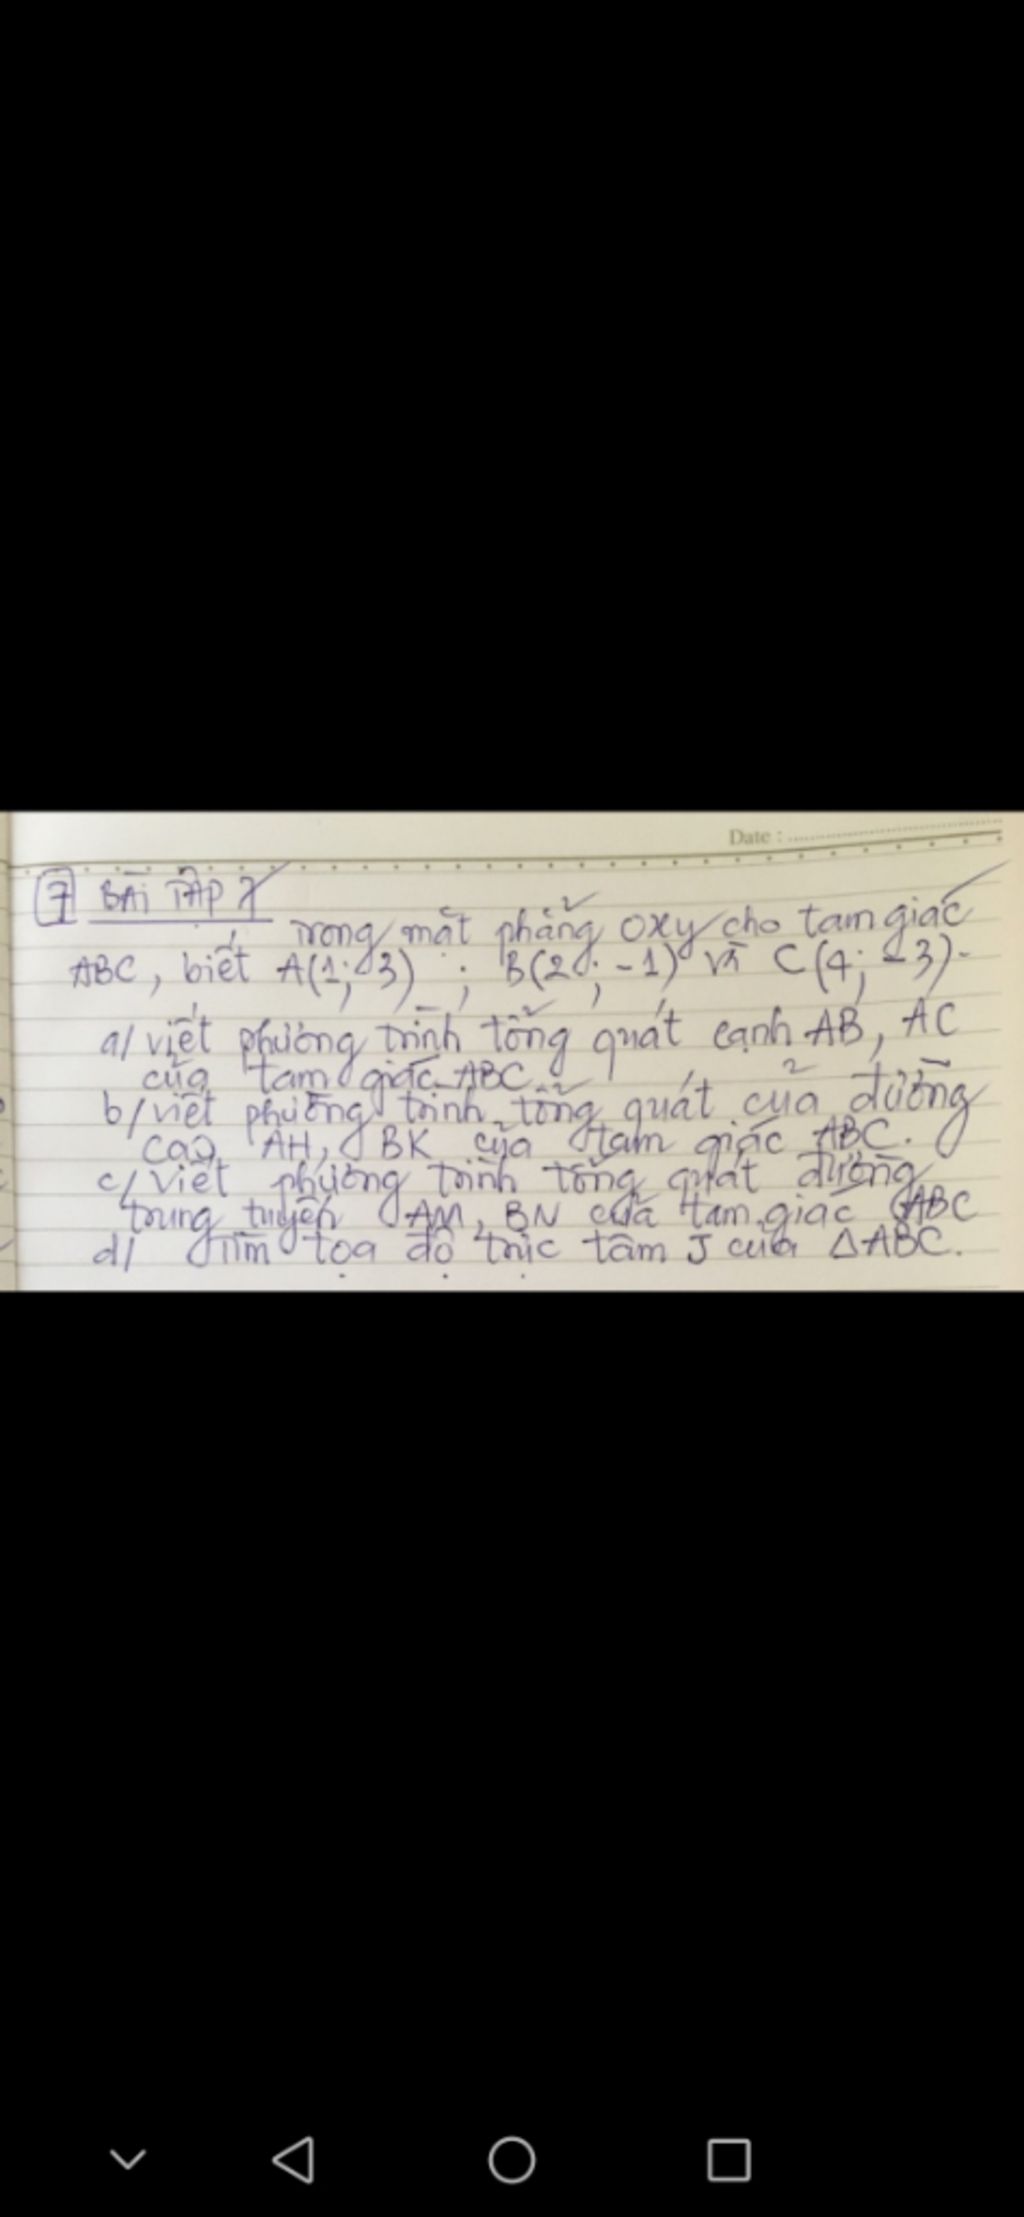 Date :
7 BÀI TẬP 7
Trong mặt phẳng oxy cho tam giác
ABC, biết A(1; 3) ; B(2; -1) và C(4; -3).
a/ viết phương trình tổng quát cạnh AB, AC
của tam giác ABC
b/ viết phương trình tổng quát của đường
cao AH, BK của tam giác ABC.
c/ viết phương trình tổng quát đường
trung tuyến AM, BN của tam giác ABC
d/ Tìm tọa độ trực tâm J của ΔABC.